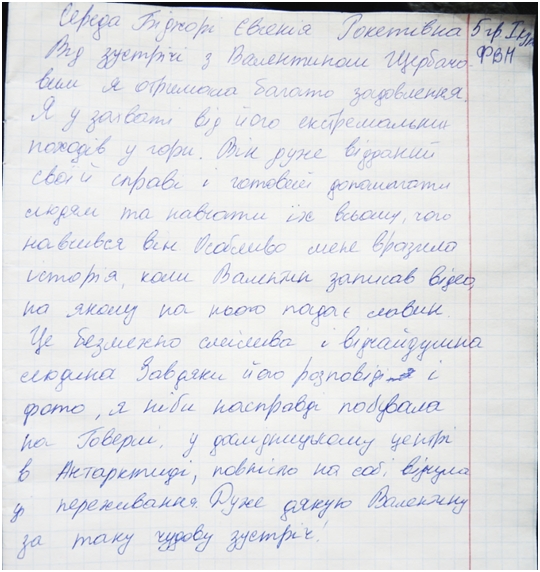 Середа Біднорі Євгенія Рокетівна 5 гр. І кур
ФВН
Від зустрічі з Валентином Щербачо-
вим я отримала багато задовлення.
Я у захваті від його екстремальних
походів у гори. Він дуже відданий
своїй справі і готовий допомагати
людям та навчати їх всьому, чого
навчився він Особливо мене вразила
історія, коли Валентин записав відео,
на якому на нього падає лавин.
Це безмежно смілива і відчайдушна
людина Завдяки його розповіді і
фото, я ніби насправді побувала
на Говерлі, у дослідницькому центрі
в Антарктиді, повністю на собі відчула
ці переживання. Дуже дякую Валентину
за таку чудову зустріч!